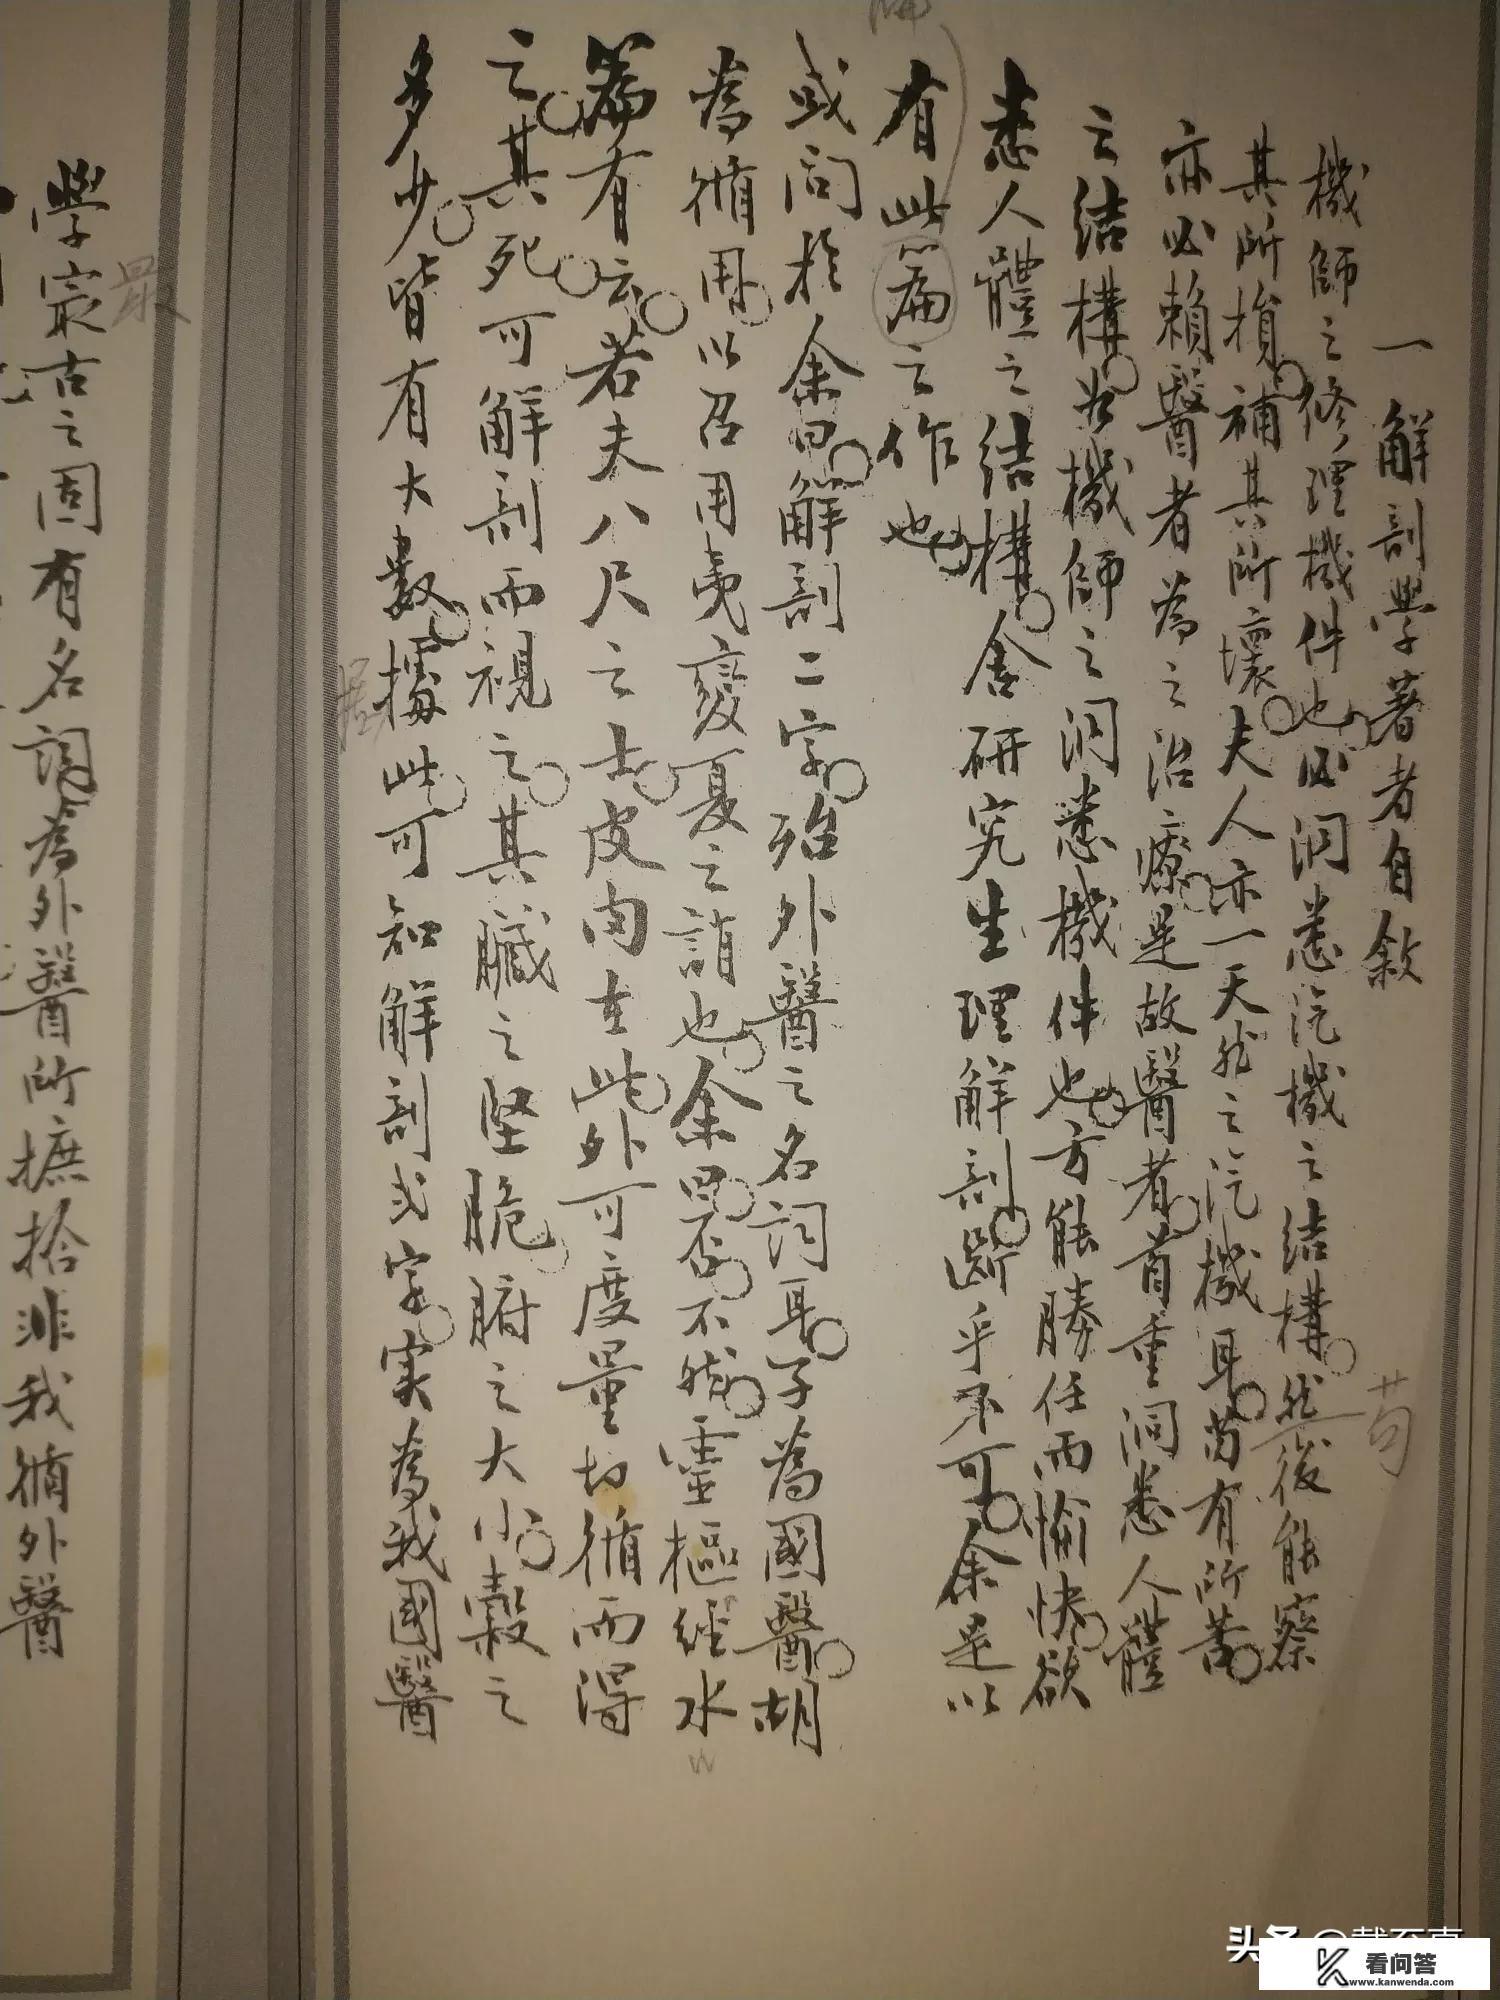 一解剖學著者自敘
機師之修理機件也必洞悉汽機之結構然後能察
其所損補其所壞夫人亦一天然之汽機耳苟有所苦
亦必賴醫者為之治療是故醫者首重洞悉人體
之結構如機師之洞悉機件也方能勝任而愉快欲
悉人體之結構舍研究生理解剖斷乎不可余是以
有此篇之作也
或問於余曰解剖二字殆外醫之名詞耳子為國醫胡
為循用以召用夷變夏之誚也余曰否不然靈樞經水
篇有云若夫八尺之士皮肉在此外可度量切循而得
之其死可解剖而視之其臟之堅脆腑之大小穀之
多少皆有大數據此可知解剖弍字實為我國醫
學冣古之固有名詞為外醫所摭拾非我循外醫
最
据
苟
头条 @戴至真
看问答
www.kanwenda.com